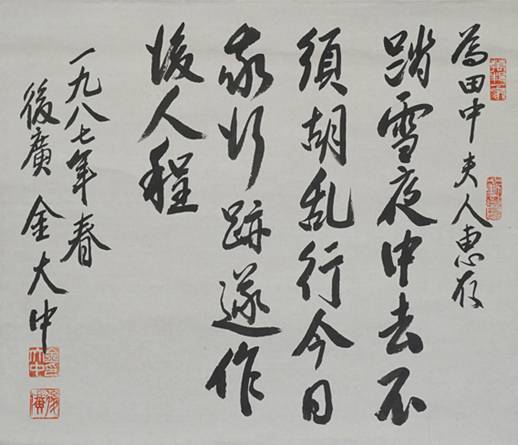 為田中夫人惠存
踏雪夜中去不
須胡乱行今日
我行跡遂作
後人程
一九八七年春
後廣 金大中
後廣